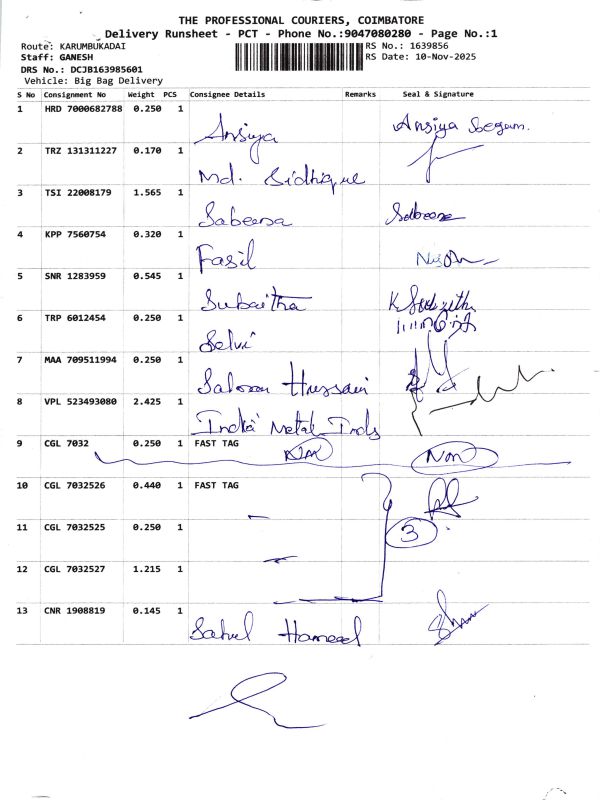 THE PROFESSIONAL COURIERS, COIMBATORE
Delivery Runsheet - PCT - Phone No.:9047080280 - Page No.:1
Route: KARUMBUKADAI RS No.: 1639856
Staff: GANESH RS Date: 10-Nov-2025
DRS No.: DCJB163985601
Vehicle: Big Bag Delivery
S No Consignment No Weight PCS Consignee Details Remarks Seal & Signature
1 HRD 7000682788 0.250 1
Ansiya Ansiya Begam.
2 TRZ 131311227 0.170 1
Md. Sidhique
3 TSI 22008179 1.565 1
Sabeena Sabeena
4 KPP 7560754 0.320 1
Fasil
5 SNR 1283959 0.545 1
Subaitha
6 TRP 6012454 0.250 1
Selvi
7 MAA 709511994 0.250 1
Hussain
8 VPL 523493080 2.425 1
India Metal Inds
9 CGL 7032 0.250 1 FAST TAG
10 CGL 7032526 0.440 1 FAST TAG
11 CGL 7032525 0.250 1
3
12 CGL 7032527 1.215 1
13 CNR 1908819 0.145 1
Sahul Hameed